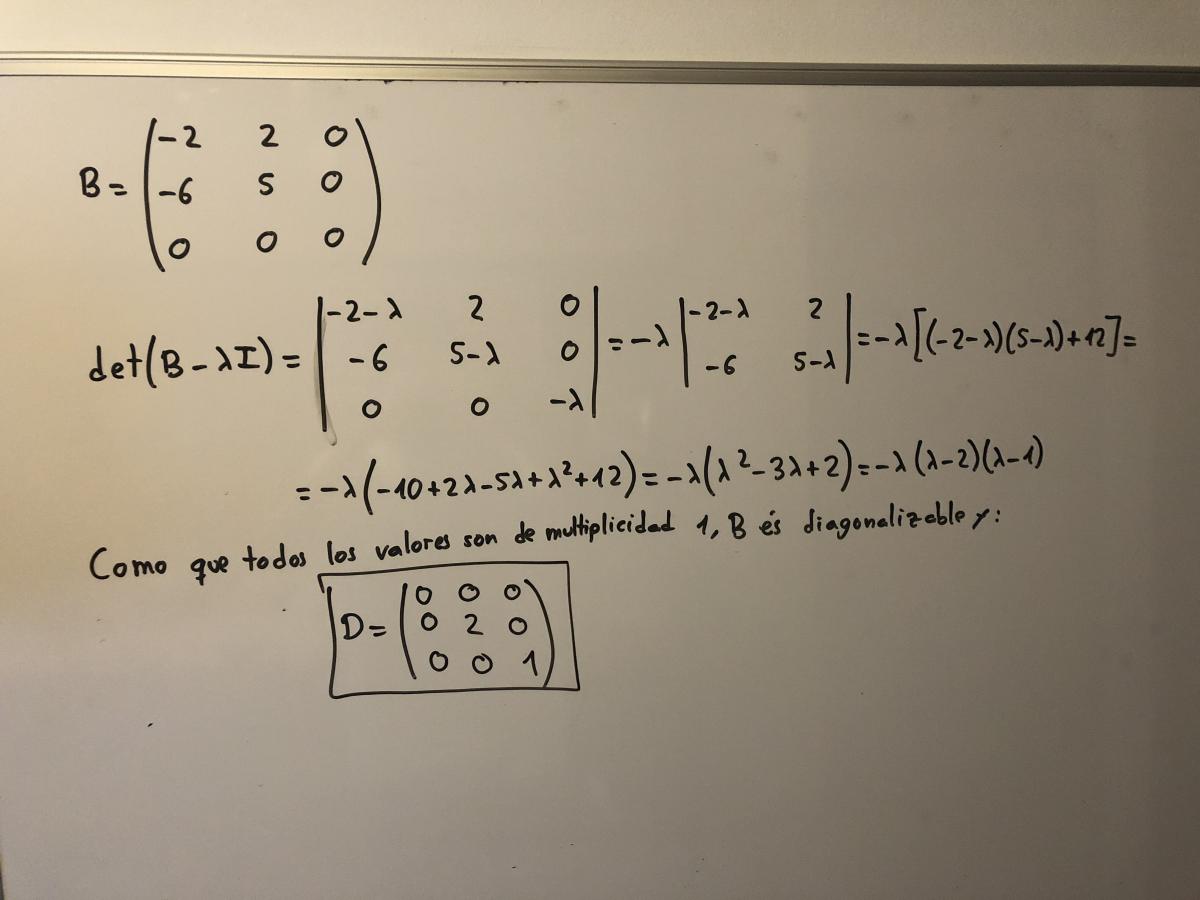 B = (-2 2 0
-6 5 0
0 0 0)
det(B - λI) = |-2-λ 2 0
-6 5-λ 0
0 0 -λ| = -λ |-2-λ 2
-6 5-λ| = -λ[(-2-λ)(5-λ)+12] =
= -λ(-10+2λ-5λ+λ²+12) = -λ(λ²-3λ+2) = -λ(λ-2)(λ-1)
Como que todos los valores son de multiplicidad 1, B és diagonalizable y:
D = (0 0 0
0 2 0
0 0 1)